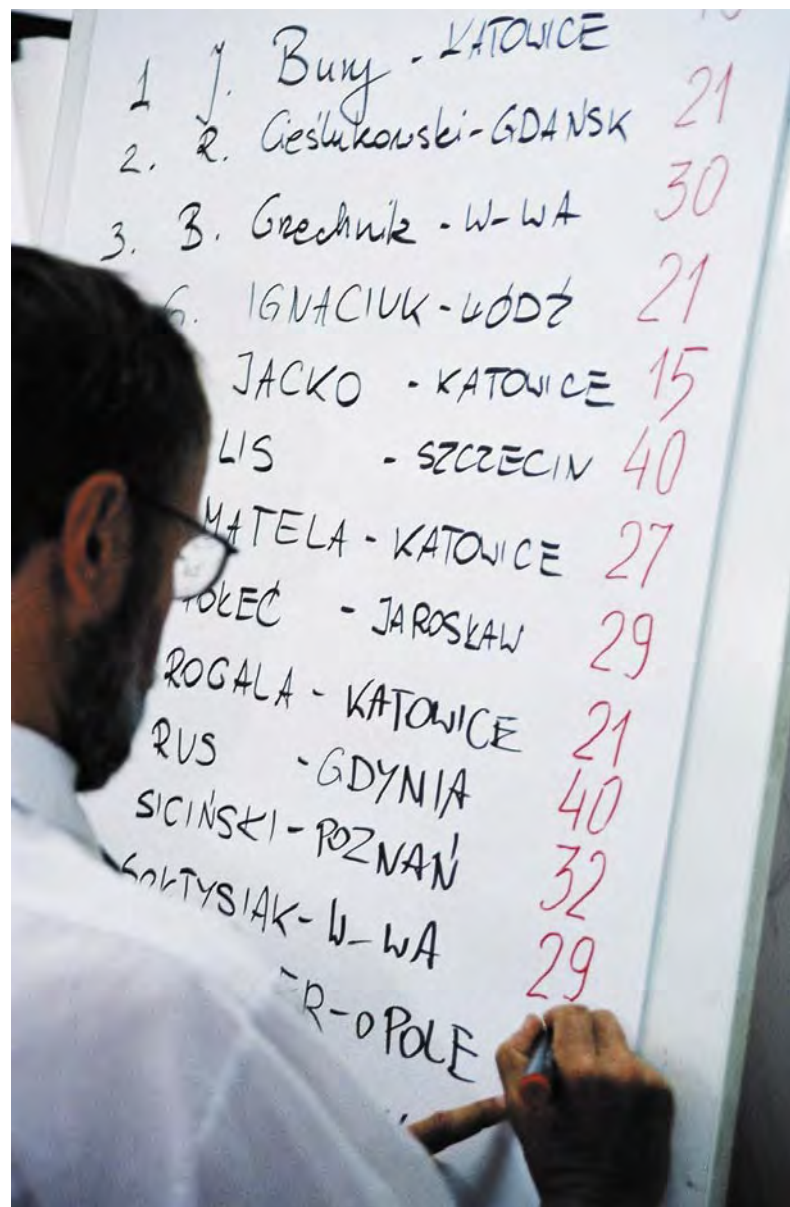 1 J. Bury - KATOWICE
2. R. Cieślukowski - GDAŃSK 21
3. B. Grechnik - W-WA 30
G. IGNACIUK - ŁÓDŹ 21
JACKO - KATOWICE 15
LIS - SZCZECIN 40
MATELA - KATOWICE 27
- JAROSŁAW 29
ROGALA - KATOWICE 21
RUS - GDYNIA 40
SICIŃSKI - POZNAŃ 32
SOŁTYSIAK - W-WA 29
ER - OPOLE